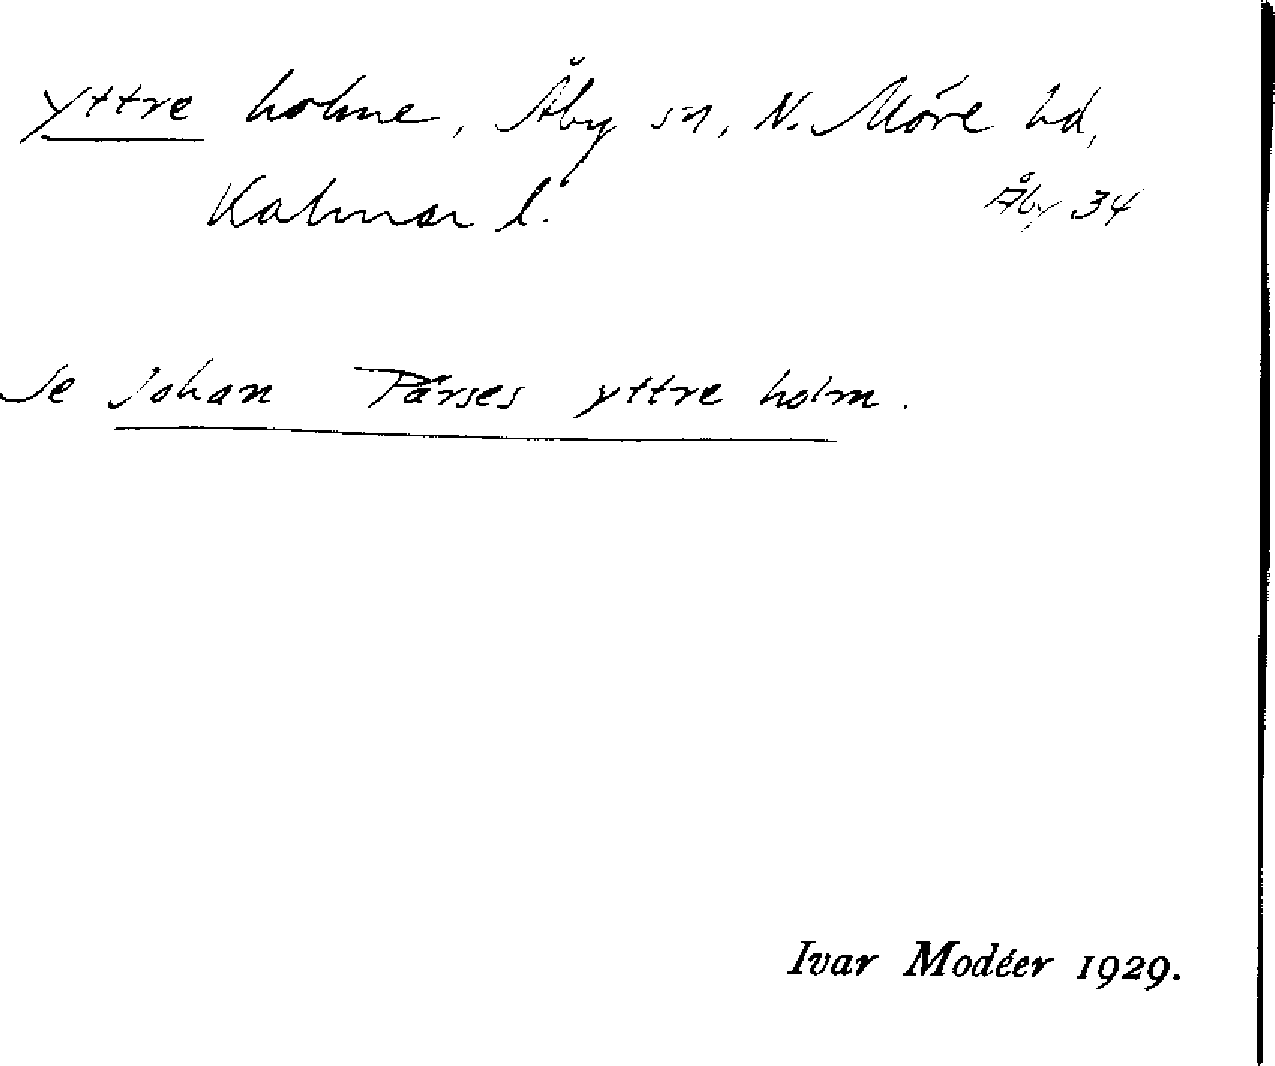 Yttre holme, Åby sn, N. Möre hd,
Kalmar l.
Åby 34
Se Johan Pärses yttre holm.
Ivar Modéer 1929.